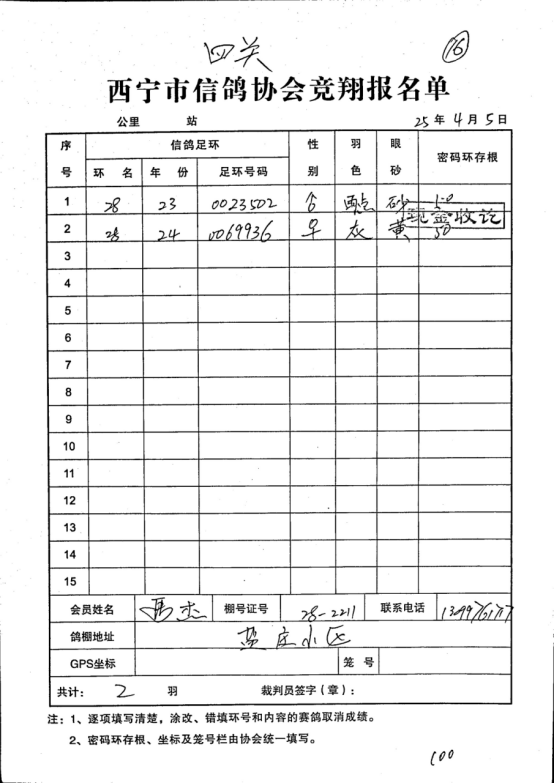 四关 16
西宁市信鸽协会竞翔报名单
公里 站 25年4月5日
序号 信鸽足环 性别 羽色 眼砂 密码环存根
环名 年份 足环号码
1 28 23 0023502 砂 50
现金收讫
2 28 24 0069936 灰 黄 50
3
4
5
6
7
8
9
10
11
12
13
14
15
会员姓名 杰 棚号证号 28-2211 联系电话
鸽棚地址 盐庄小区
GPS坐标 笼号
共计: 2 羽 裁判员签字(章):
注:1、逐项填写清楚,涂改、错填环号和内容的赛鸽取消成绩。
2、密码环存根、坐标及笼号栏由协会统一填写。
100